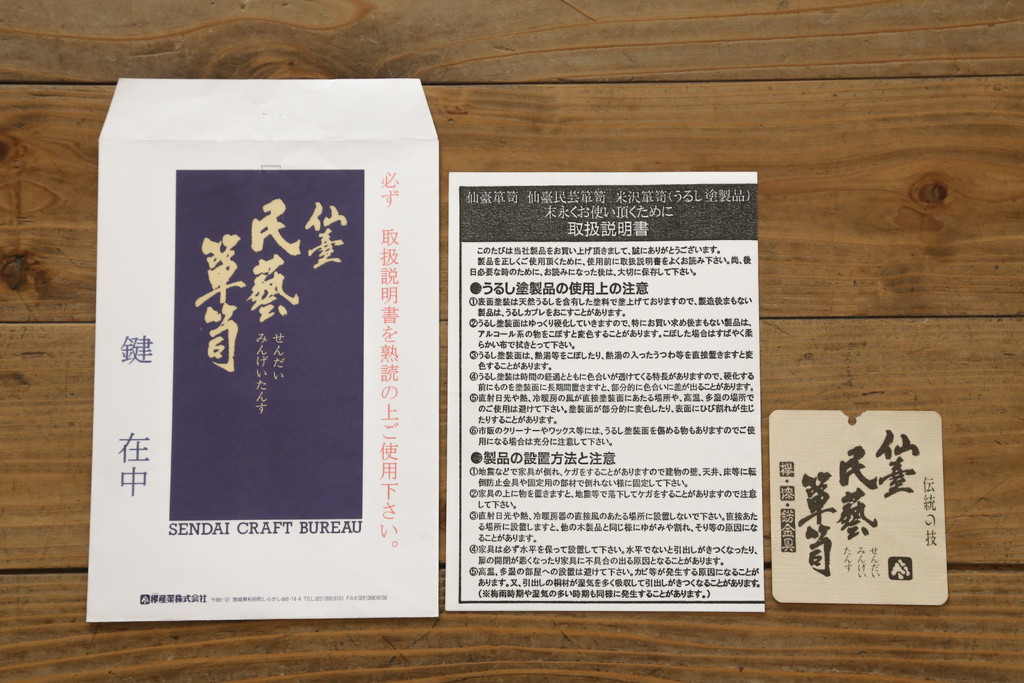 必ず 取扱説明書を熟読の上ご使用下さい。
仙臺
民藝
簞笥
せんだい
みんげいたんす
鍵 在中
SENDAI CRAFT BUREAU
欅産業株式会社
仙臺簞笥 仙臺民芸簞笥 米沢簞笥(うるし塗製品)
末永くお使い頂くために
取扱説明書
このたびは当社製品をお買い上げ頂きまして、誠にありがとうございます。
製品を正しくご使用頂くために、使用前に取扱説明書をよくお読み下さい。尚、後
日必要な時のために、お読みになった後は、大切に保存して下さい。
●うるし塗製品の使用上の注意
①表面塗装は天然うるしを含有した塗料で塗上げておりますので、製造後まもない
製品は、うるしカブレをおこすことがあります。
②うるし塗装面はゆっくり硬化していきますので、特にお買い求め後まもない製品は、
アルコール系の物をこぼすと変色することがあります。こぼした場合はすばやく柔
らかい布で拭きとって下さい。
③うるし塗装面は、熱湯等をこぼしたり、熱湯の入ったうつわ等を直接置きますと変
色することがあります。
④うるし塗装は時間の経過とともに色合いが透けてくる特長がありますので、硬化する
前にものを塗装面に長期間置きますと、部分的に色合いに差が出ることがあります。
⑤直射日光や熱、冷暖房の風が直接塗装面にあたる場所や、高温、多湿の場所で
のご使用は避けて下さい。塗装面が部分的に変色したり、表面にひび割れが生じ
たりすることがあります。
⑥市販のクリーナーやワックス等には、うるし塗装面を傷める物もありますのでご使
用になる場合は充分に注意して下さい。
●製品の設置方法と注意
①地震などで家具が倒れ、ケガをすることがありますので建物の壁、天井、床等に転
倒防止金具や固定用の部材で倒れない様に固定して下さい。
②家具の上に物を置きますと、地震等で落下してケガをすることがありますので注意
して下さい。
③直射日光や熱、冷暖房器の直接風のあたる場所に設置しないで下さい。直接あた
る場所に設置しますと、他の木製品と同じ様にゆがみや割れ、そり等の原因になる
ことがあります。
④家具は必ず水平を保って設置して下さい。水平でないと引出しがきつくなったり、
扉の開閉が悪くなったり家具に不具合の出る原因になることがあります。
⑤高温、多湿の部屋への設置は避けて下さい。カビ等が発生する原因になることが
あります。又、引出しの桐材が湿気を多く吸収して引出しがきつくなることがあります。
(※梅雨時期や湿気の多い時期も同様に発生することがあります。)
伝統の技
仙臺
民藝
簞笥
せんだい
みんげい
たんす
欅・漆・鍛金具